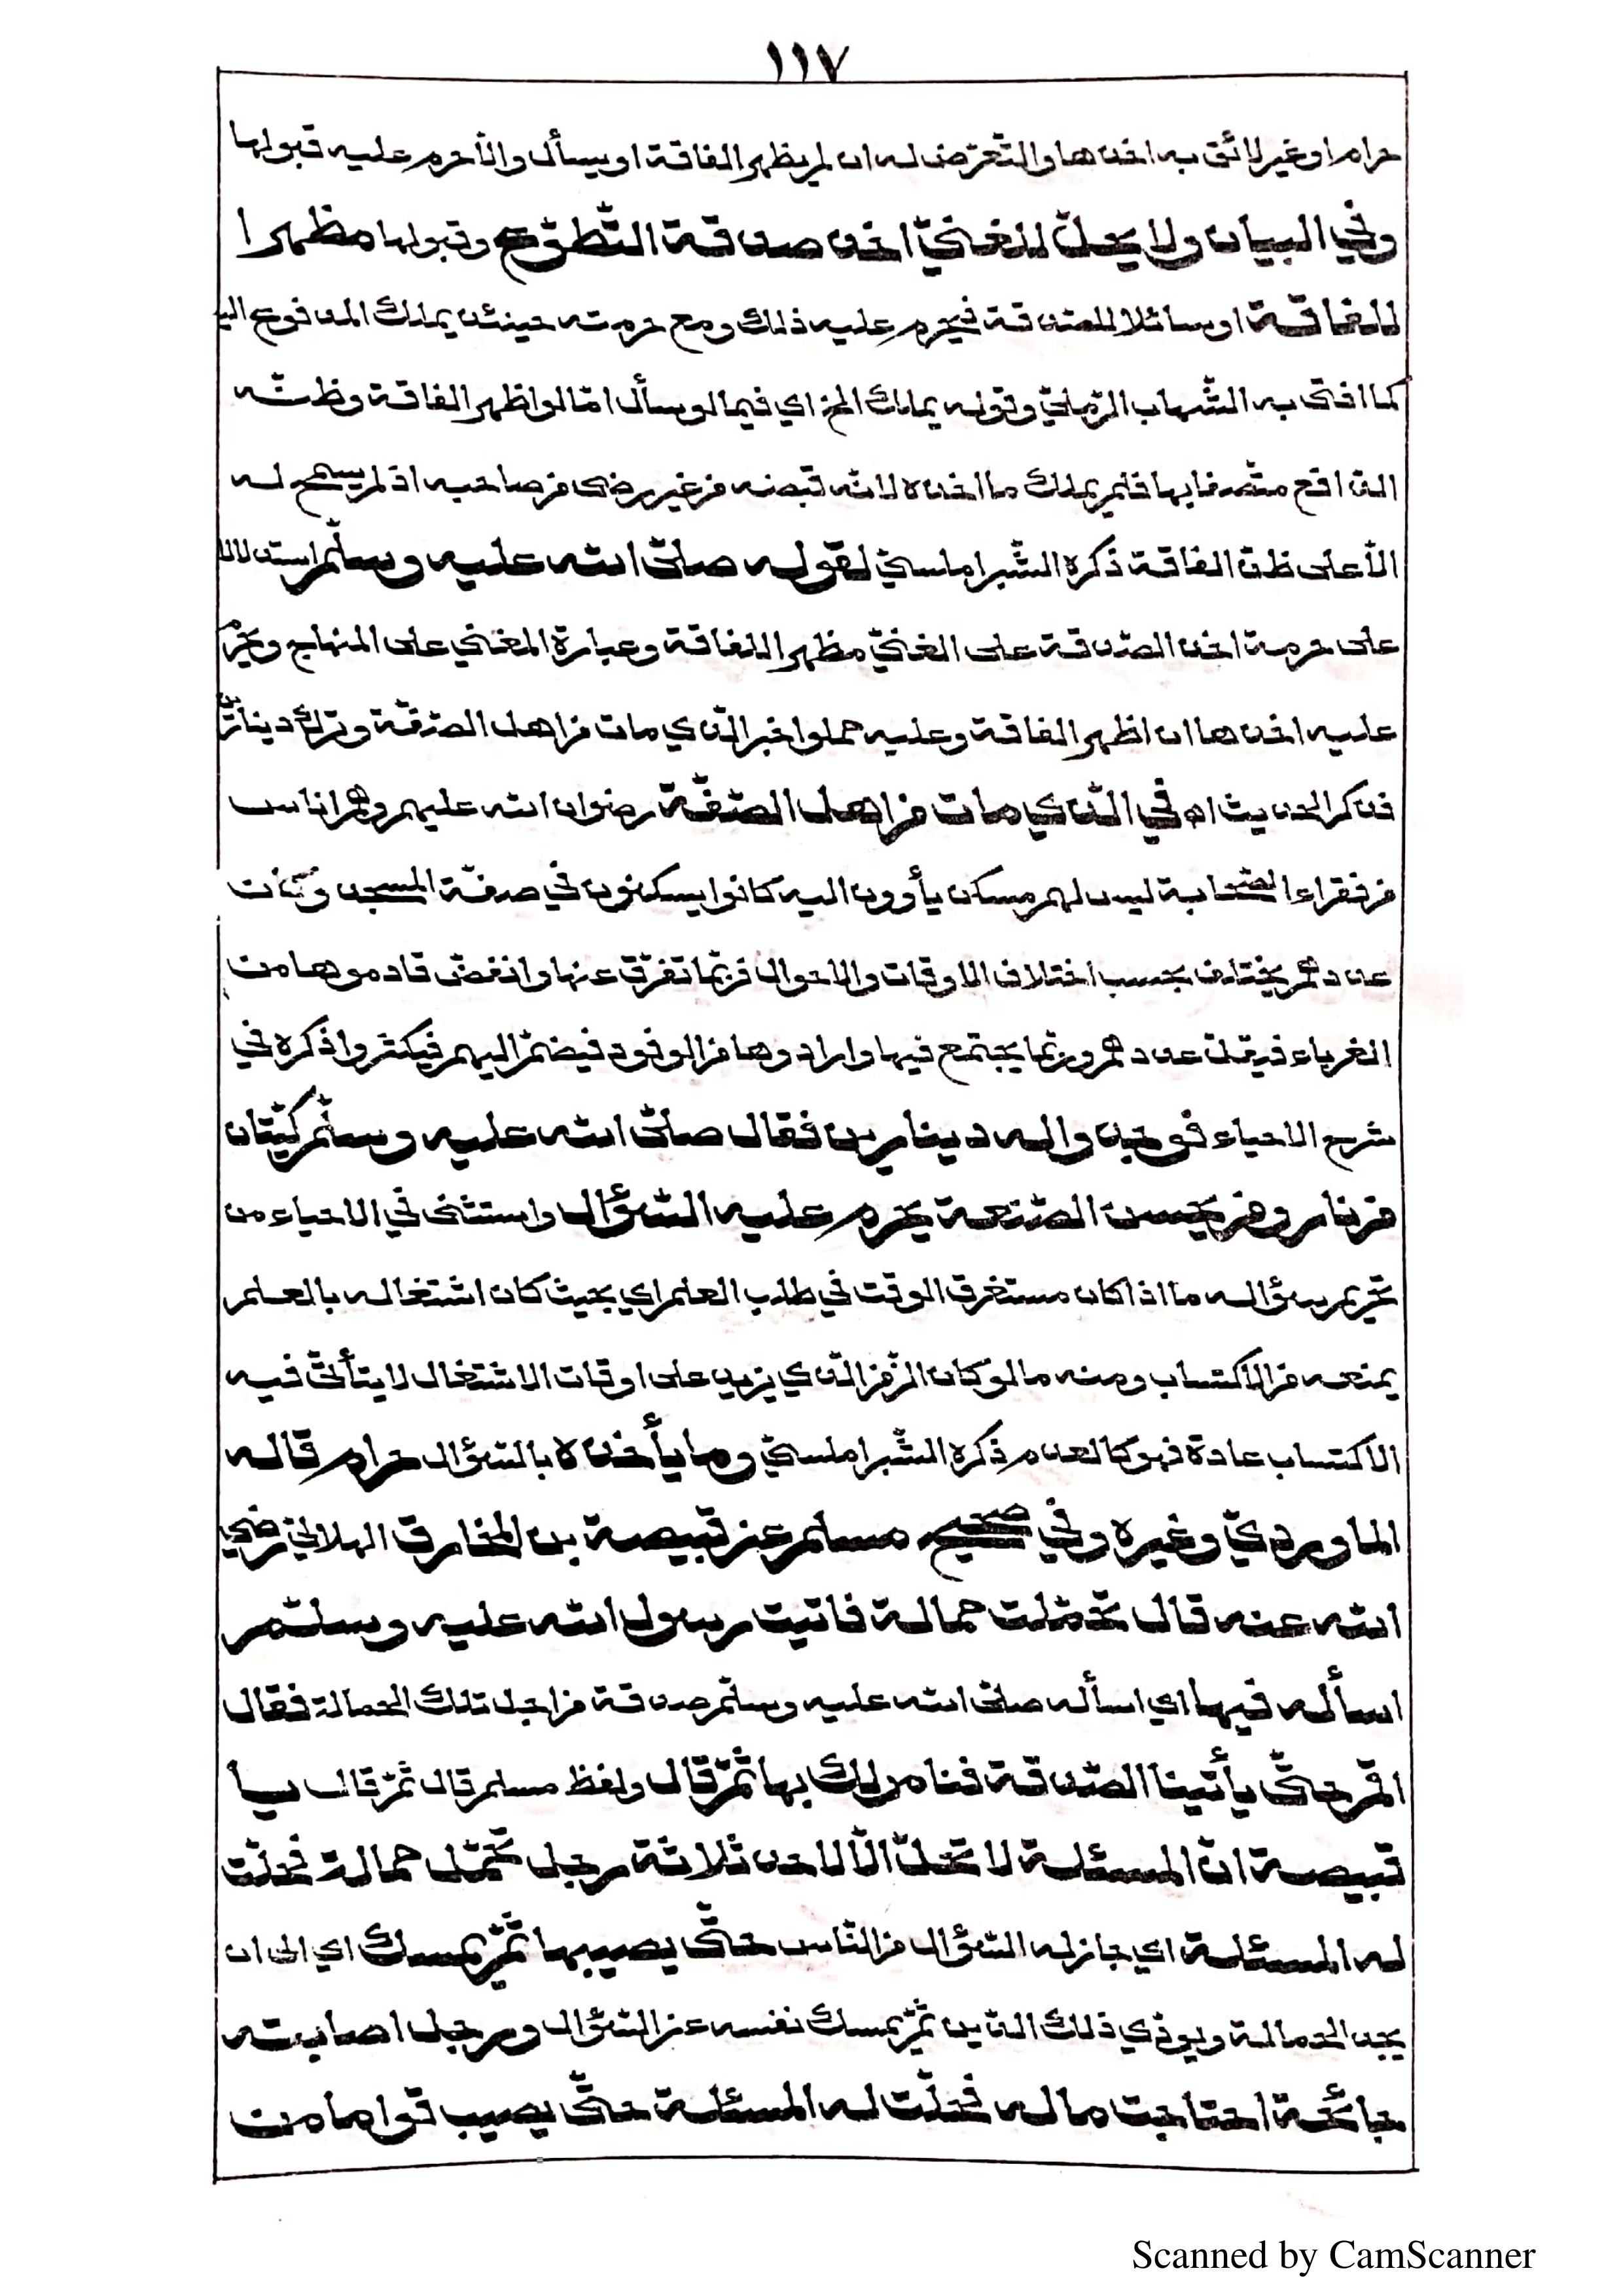 ١١٧
حراما وغير لائق به اخذها والتعرّض له ان لم يظهر الفاقة او يسأل والّا حرم عليه قبولها
وفي البيان ولا يحلّ للغنيّ اخذ صدقة التّطوّع وقبولها مظهرا
للفاقة او سائلا للصّدقة فيحرم عليه ذلك ومع حرمته حينئذ يملك المدفوع اليه
كما افتى به الشّهاب الرّمليّ وقوله يملك الخ اي فيما لو سأل امّا لو اظهر الفاقة وظنّه
الدّافع متّصفا بها فلم يملك ما اخذه لانّه قبضه من غير رضى من صاحبه اذ لم يسمح له
الّا على ظنّ الفاقة ذكره الشّبراملسيّ لقوله صلّى الله عليه وسلّم استدلالا
على حرمة اخذ الصّدقة على الغنيّ مظهرا للفاقة وعبارة المغني على المنهاج ويحرم
عليه اخذها ان اظهر الفاقة وعليه حملوا خبر الّذي مات من اهل الصّفّة وترك دينارين
فذكر الحديث اه في الّذي مات من اهل الصّفّة رضوان الله عليهم وهم اناس
من فقراء الصّحابة ليس لهم مسكن يأوون اليه كانوا يسكنون في صفّة المسجد وكانت
عددهم يختلف بحسب اختلاف الاوقات والاحوال فربّما تفرّق عنها وانفضّ قادموها من
الغرباء فيقلّ عددهم وربّما يجتمع فيها وارادوها من الوفود فينضمّ اليهم فيكثروا ذكره في
شرح الاحياء فوجدوا له دينارين فقال صلّى الله عليه وسلّم كيّتان
من نار ومن يحسن الصّنعة يحرم عليه السّؤال واستثنى في الاحياء من
تحريم سؤاله ما اذا كان مستغرق الوقت في طلب العلم اي بحيث كان اشتغاله بالعلم
يمنعه من الاكتساب ومنه ما لو كان الزّمن الّذي يزيد على اوقات الاشتغال لا يتأتّى فيه
الاكتساب عادة فهو كالعدم ذكره الشّبراملسيّ وما يأخذه بالسّؤال حرام قاله
الماورديّ وغيره وفي صحيح مسلم عن قبيصة بن المخارق الهلالي رضي
الله عنه قال تحمّلت حمالة فاتيت رسول الله عليه وسلّم
اسأله فيها اي اسأله صلّى الله عليه وسلّم صدقة من اجل تلك الحمالة فقال
اقم حتّى يأتينا الصّدقة فنامر لك بها ثمّ قال ولفظ مسلم قال ثمّ قال يا
قبيصة انّ المسئلة لا تحلّ الّا لاحد ثلاثة رجل تحمّل حمالة فحلّت
له المسئلة اي جاز له السّؤال من النّاس حتّى يصيبها ثمّ يمسك اي الى ان
يجد الحمالة ويؤدي ذلك الدّين ثمّ يمسك نفسه عن السّؤال ورجل اصابته
جائحة اجتاحت ماله فحلّت له المسئلة حتّى يصيب قواما من
Scanned by CamScanner